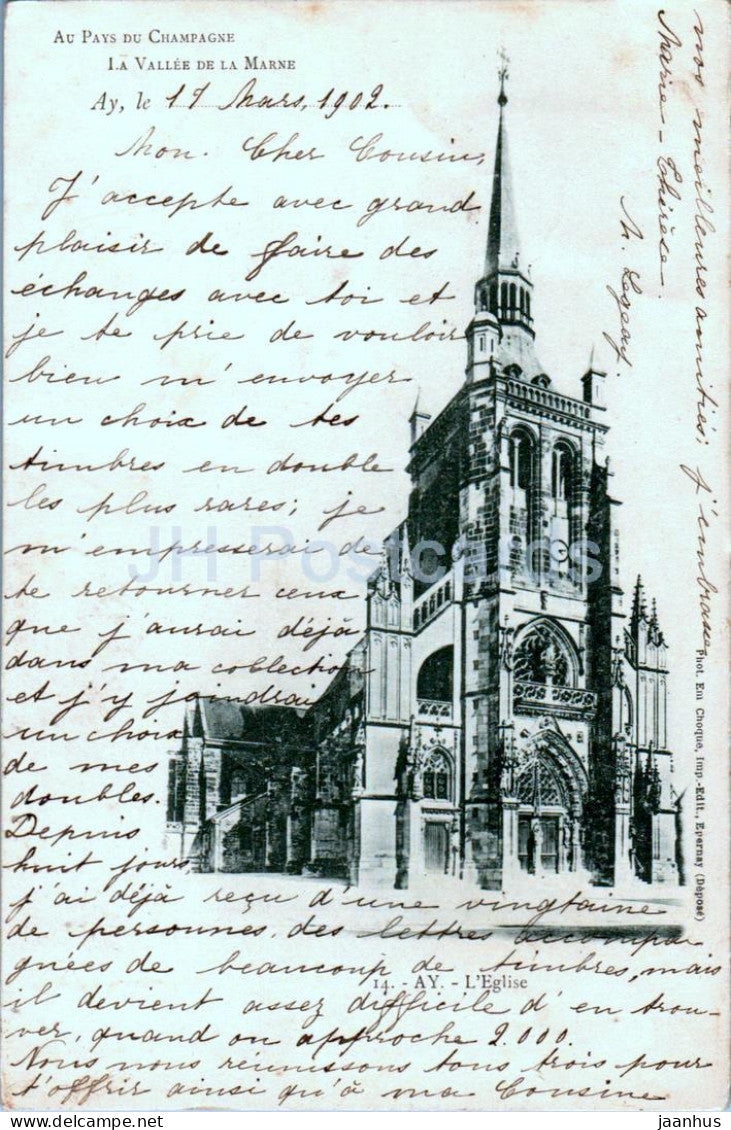 AU PAYS DU CHAMPAGNE
LA VALLÉE DE LA MARNE
Ay, le 17 Mars, 1902.
Mon. Cher Cousin,
J'accepte avec grand
plaisir de faire des
échanges avec toi et
je te prie de vouloir
bien m'envoyer
un choix de tes
timbres en double
les plus rares; je
m'empresserai de
te retourner ceux
que j'aurai déjà
dans ma collection
et j'y joindrai
un choix
de mes
doubles.
Depuis
huit jours
j'ai déjà reçu d'une vingtaine
de personnes, des lettres accompa-
gnées de beaucoup de timbres, mais
il devient assez difficile d'en trou-
ver, quand on approche 2.000.
Nous nous réunissons tous trois pour
t'offrir ainsi qu'à ma Cousine
nos meilleures amitiés; j'embrasse
Marie-Thérèse.
14. - AY. - L'Eglise
Phot. Em. Choque, imp.-Edit., Epernay (Déposé)
JH Postcards
jh-postcard.com
jaanhus @ delcampe